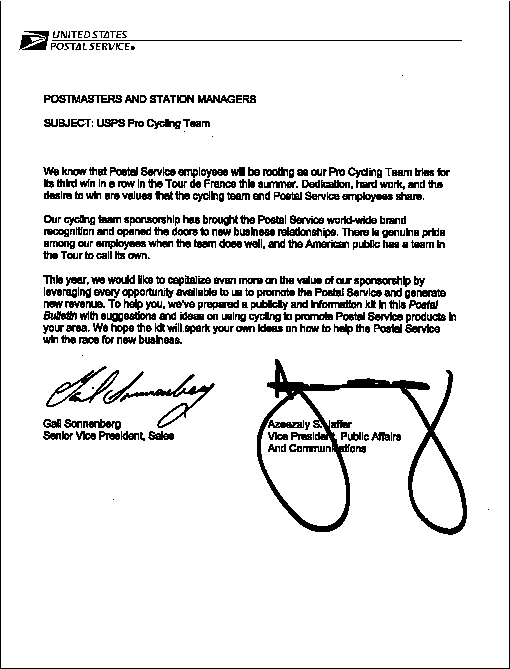 UNITED STATES
POSTAL SERVICE®
POSTMASTERS AND STATION MANAGERS
SUBJECT: USPS Pro Cycling Team
We know that Postal Service employees will be rooting as our Pro Cycling Team tries for
its third win in a row in the Tour de France this summer. Dedication, hard work, and the
desire to win are values that the cycling team and Postal Service employees share.
Our cycling team sponsorship has brought the Postal Service world-wide brand
recognition and opened the doors to new business relationships. There is genuine pride
among our employees when the team does well, and the American public has a team in
the Tour to call its own.
This year, we would like to capitalize even more on the value of our sponsorship by
leveraging every opportunity available to us to promote the Postal Service and generate
new revenue. To help you, we've prepared a publicity and information kit in this Postal
Bulletin with suggestions and ideas on using cycling to promote Postal Service products in
your area. We hope the kit will spark your own ideas on how to help the Postal Service
win the race for new business.
Gail Sonnenberg
Gail Sonnenberg
Senior Vice President, Sales
Azeezaly S. Jaffer
Vice President, Public Affairs
And Communications